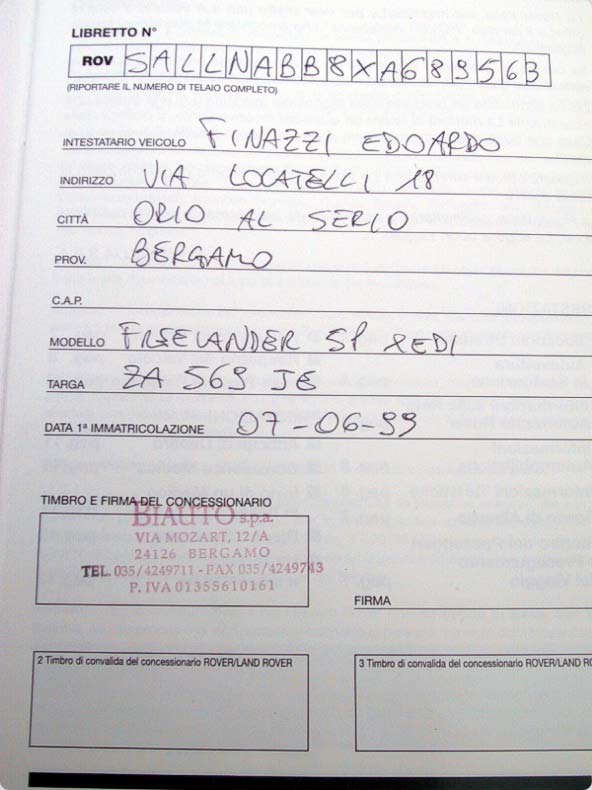 LIBRETTO N°
ROV SALLNABB8XA689563
(RIPORTARE IL NUMERO DI TELAIO COMPLETO)
INTESTATARIO VEICOLO FINAZZI EDOARDO
INDIRIZZO VIA LOCATELLI 18
CITTÀ ORIO AL SERIO
PROV. BERGAMO
C.A.P.
MODELLO FREELANDER 5P XEDI
TARGA ZA 569 JE
DATA 1ª IMMATRICOLAZIONE 07-06-99
TIMBRO E FIRMA DEL CONCESSIONARIO
BIAUTO s.p.a.
VIA MOZART, 12/A
24126 BERGAMO
TEL. 035/4249711 - FAX 035/4249743
P. IVA 01355610161
FIRMA
2 Timbro di convalida del concessionario ROVER/LAND ROVER
3 Timbro di convalida del concessionario ROVER/LAND RO